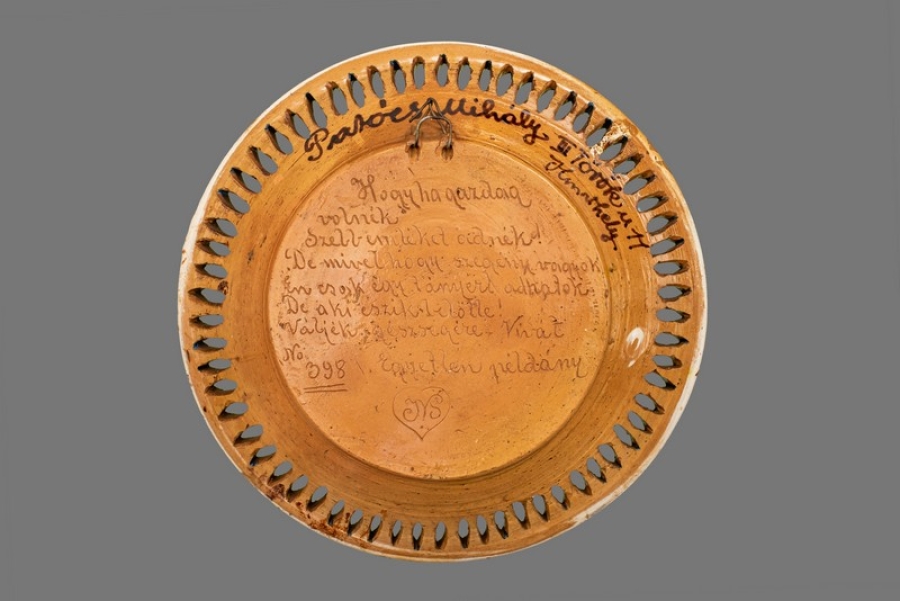 Mihály
III Török u 11
Hogy ha gazdag
volnék
Szebb emléket adnék!
De mivel hogy szegény vagyok
Én csak egy tányért adhatok
De aki eszik belölle!
Váljék egészségére Vivát
No 398 Egyetlen példány
NS